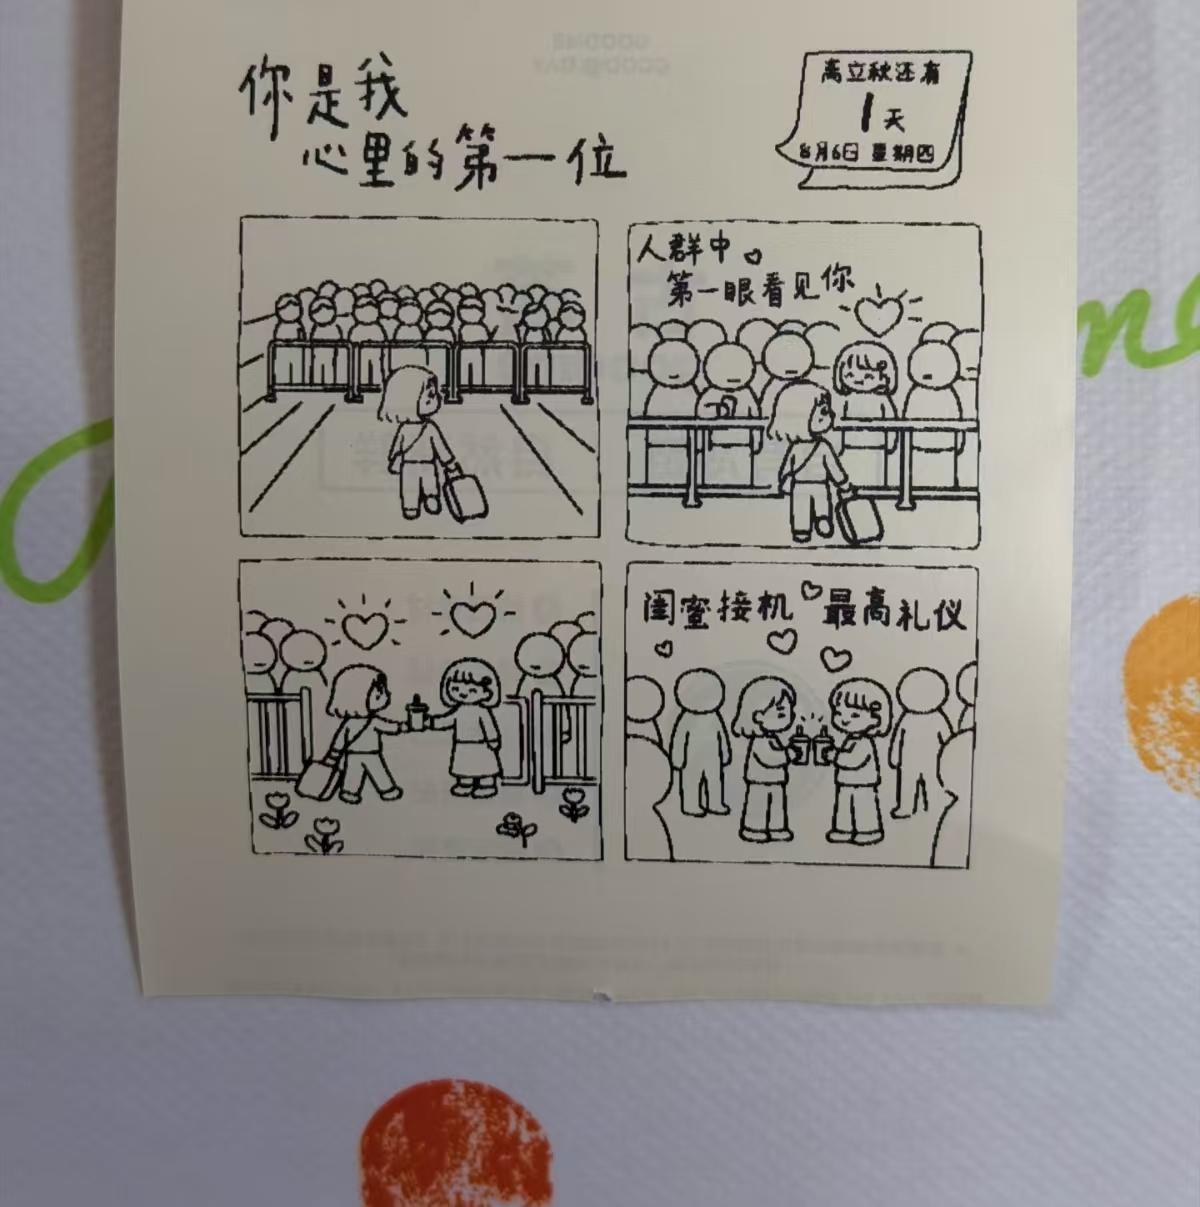 你是我
心里的第一位
离立秋还有
1天
8月6日 星期四
人群中
第一眼看见你
闺蜜接机 最高礼仪